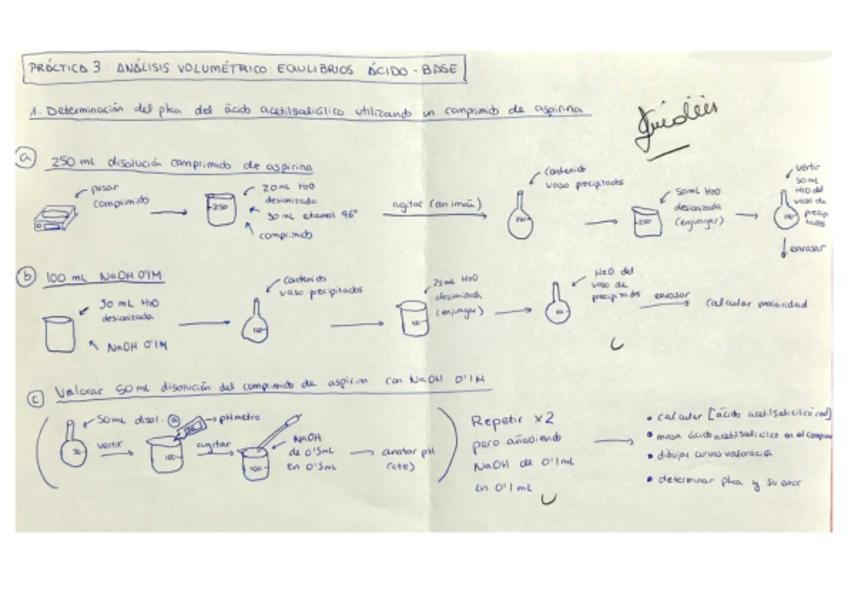 PRÁCTICA 3: ANÁLISIS VOLUMÉTRICO: EQUILIBRIOS ÁCIDO-BASE
1. Determinación del pka del ácido acetilsalicílico utilizando un comprimido de aspirina
a 250 mL disolución comprimido de aspirina
pesar
comprimido
250
20 mL H2O
desionizada
30 mL etanol 96°
comprimido
agitar (con imán)
contenido
vaso precipitados
250
50 mL H2O
desionizada
(enjuagar)
250
vertir
50 mL
H2O del
vaso de
precipi
tados
250
enrasar
b 100 mL NaOH 0'1M
30 mL H2O
desionizada
NaOH 0'1M
contenido
vaso precipitados
100
25 mL H2O
desionizada
(enjuagar)
100
H2O del
vaso de
precipitados
100
enrasar
calcular molaridad
c Valorar 50 mL disolución del comprimido de aspirina con NaOH 0'1M
50 mL disol. a
50
vertir
pHmetro
100
agitar
100
NaOH
de 0'5mL
en 0'5mL
anotar pH
(cte)
Repetir x2
pero añadiendo
NaOH de 0'1mL
en 0'1mL
• calcular [ácido acetilsalicílico real]
• masa ácido acetilsalicílico en el compri
• dibujar curvas valoración
• determinar pka y su error